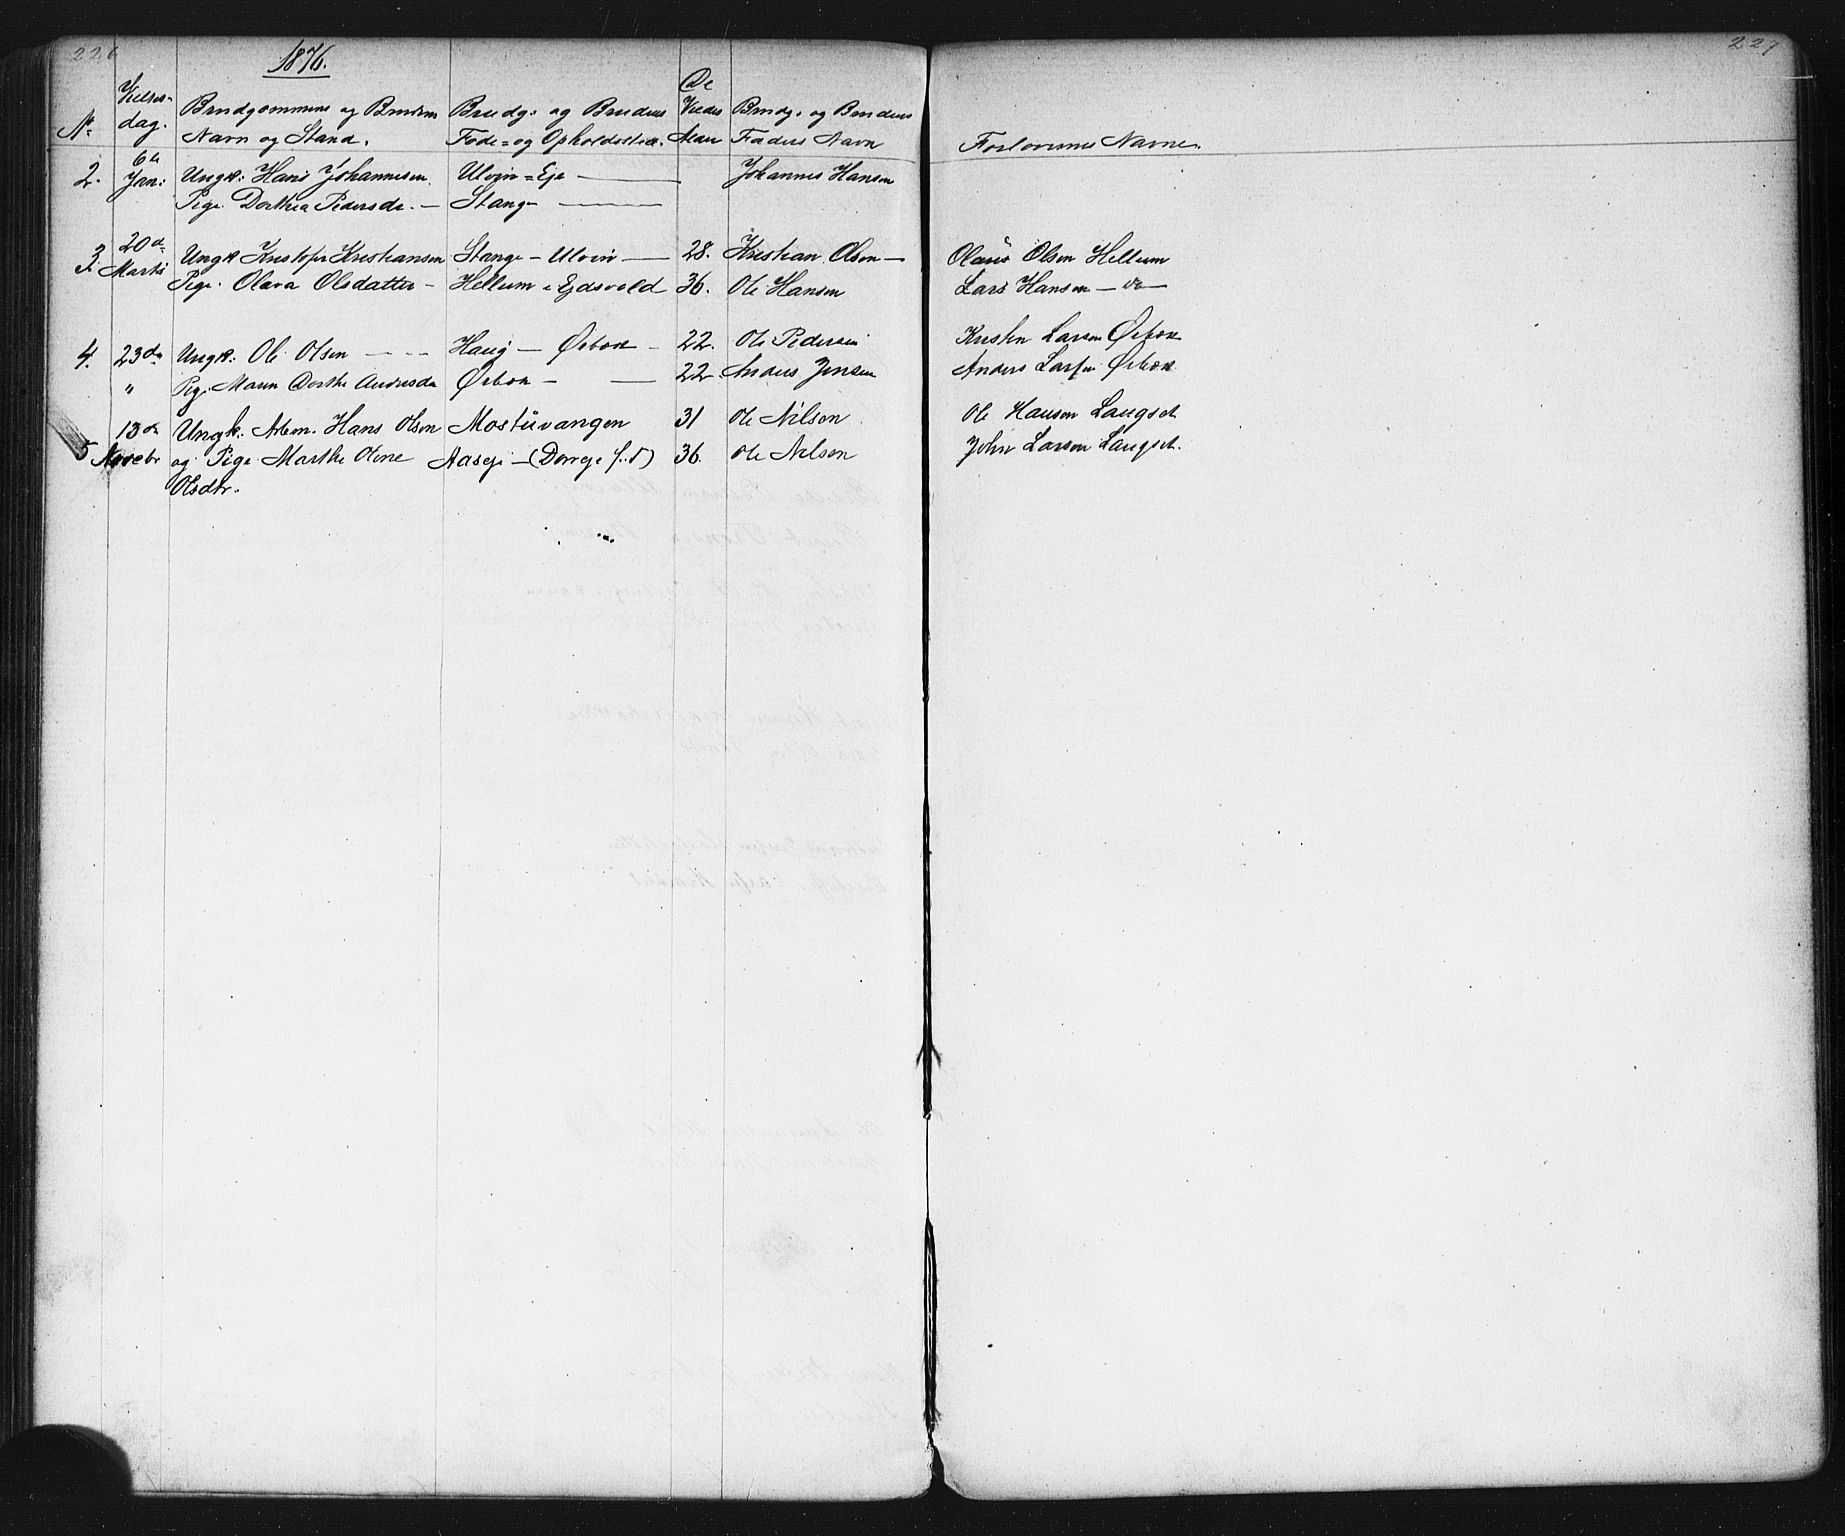 226
1876.
227
No
Vielses-
dag.
Brudgommens og Brudens
Navn og Stand.
Brudg: og Brudens
Føde= og Opholdssted.
De
Viedes
Alder
Brudg: og Brudens
Faders Navn
Forlovernes Navne.
2. 6te Jan: Ungk: Hans Johannesen Ulvin = Eje Johannes Hansen
Pige Dorthea Pedersdr. — Stange
3. 20de Ungk Kristofer Kristiansen Stange — Ulvin — 28. Kristian Olsen — Olaus Olsen Hellum
Marts Pige. Olava Olsdatter — Hellum i Ejdsvold 36. Ole Hansen Lars Hansen — do —
4. 23de Ungk: Ole Olsen — Haug — Ørbæk — 22. Ole Pedersen Kristen Larsen Ørbæk
" Pige Maren Dorthe Andersdr Ørbæk — 22. Anders Jensen Anders Larsen Ørbæk
13de Ungk. Arbm. Hans Olsen Mostuvangen 31 Ole Nilsen Ole Hansen Laugset
5 Novebr og Pige Marthe Oline Aaseje — (Dorreje f.d) 36. Ole Nilsen John Larsen Laugset.
Olsdtr.